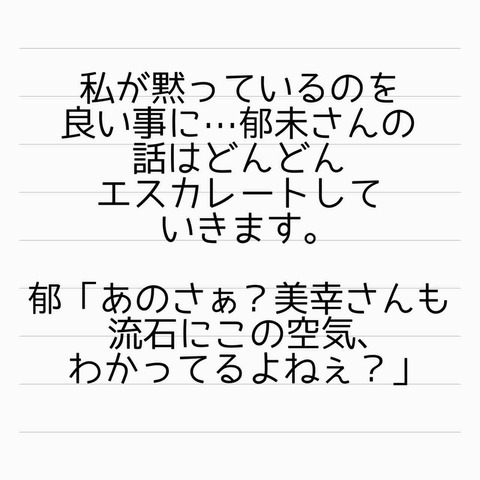 私が黙っているのを
良い事に…郁未さんの
話はどんどん
エスカレートして
いきます。
郁「あのさぁ?美幸さんも
流石にこの空気、
わかってるよねぇ?」